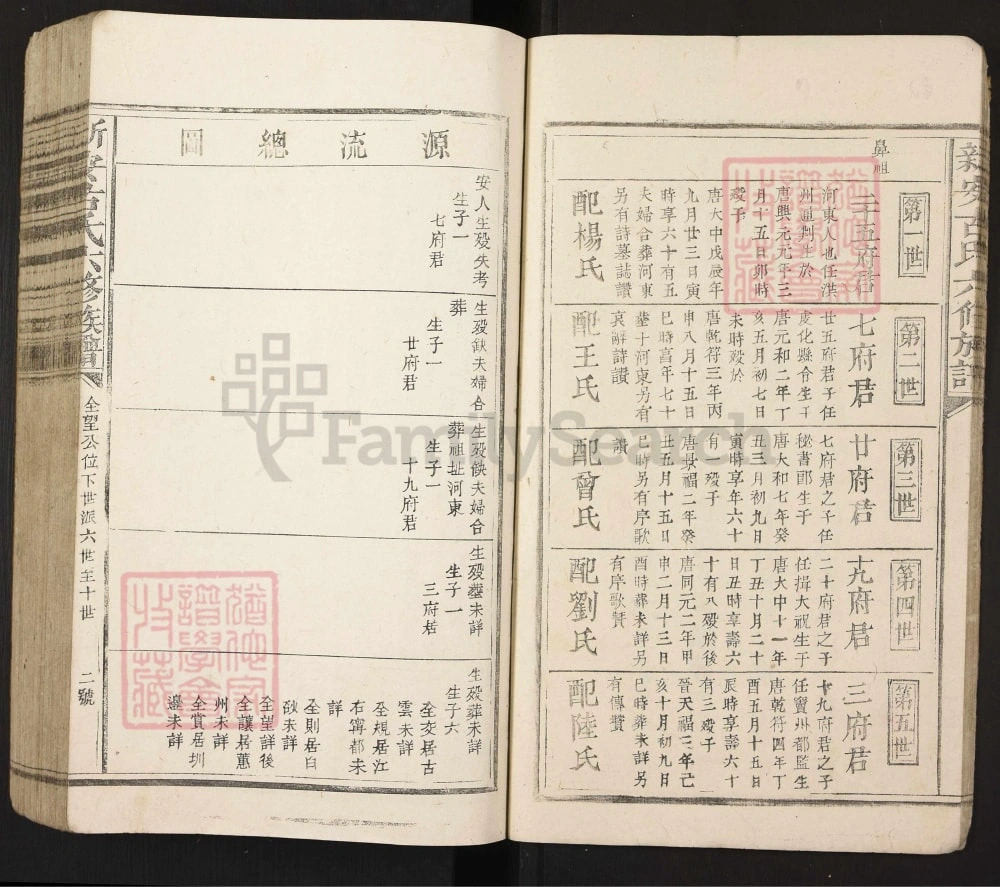 新安古氏六修族譜
鼻祖
第一世
二十五府君
河東人也任洪
州通判生於
唐興元元年三
月十五日卯時
歿于
唐大中戊辰年
九月廿三日寅
時享六十有五
夫婦合葬河東
另有詩墓誌讚
配楊氏
第二世
七府君
廿五府君子任
虔化縣令生于
唐元和二年丁
亥五月初七日
未時歿於
唐乾符三年丙
申八月十五日
巳時壽年七十
塟于河東另有
哀辭詩讚
配王氏
第三世
廿府君
七府君之子任
秘書郎生于
唐大和七年癸
丑三月初九日
寅時享年六十
有一歿于
唐景福二年癸
丑五月十五日
巳時另有序歌
讚
配曾氏
第四世
十九府君
二十府君之子
任揖大祝生于
唐大中十一年
丁丑十月二十
日丑時享壽六
十有八歿於後
唐同元二年甲
申二月十三日
酉時葬未詳另
有序歌贊
配劉氏
第五世
三府君
十九府君之子
任竇州都監生
唐乾符四年丁
酉五月十五日
辰時享壽六十
有三歿于
晉天福三年己
亥十月初九日
巳時葬未詳另
有傳贊
配陸氏
源流總圖
安人生歿失考
生子一
七府君
生歿缺夫婦合
葬
生子一
廿府君
生歿缺夫婦合
葬祖址河東
生子一
十九府君
生歿塟未詳
生子一
三府君
生歿葬未詳
生子六
全交居古
雲未詳
全規居江
右寗都未
詳
全則居白
沙未詳
全望詳後
全讓居蕙
州未詳
全賞居圳
邊未詳
全望公位下世派六世至十世
二號
FamilySearch